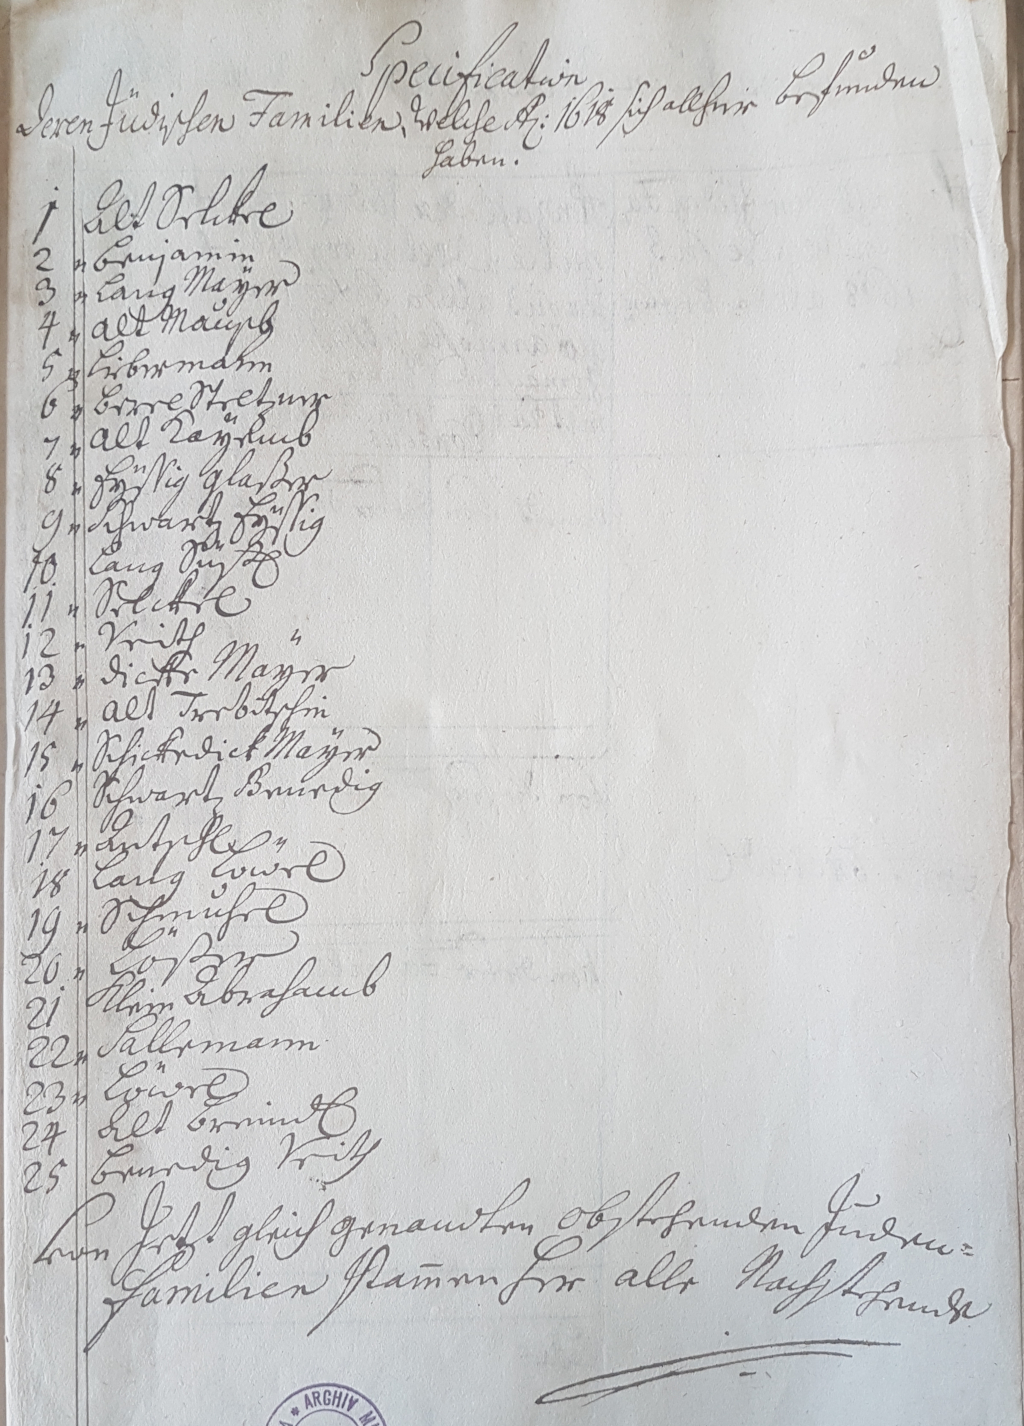 Specification
deren Jüdischen Familien, welche Aõ: 1618 sich allhier befunden
haben.
1 Alt Selckel
2 " Benjamin
3 " Lang Mäyer
4 " Alt Mauschl
5 " Liebermann
6 " Berel Steltzner
7 " Alt
8 " Eyssig Glaßer
9 " Schwartz Eyssig
10 Lang Süßl
11 " Selckel
12 " Veith
13 " dicke Mäyer
14 " Alt Trebitschin
15 " Schickedick Mäyer
16 Schwartz Benedig
17 "
18 Lang Löwel
19 " Schmuhel
20 " Lößer
21 Klein Abrahamb
22 " Sallemann
23 " Löwel
24 Alt Breindl
25 Benedig Veith
Von Jetzt gleich genandten obstehenden Juden-
Familien stam̄en her alle Nachstehende
* ARCHIV